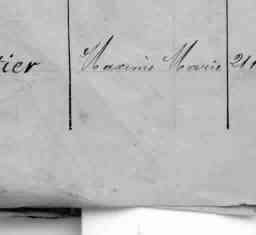 tier Maxime Marie 21